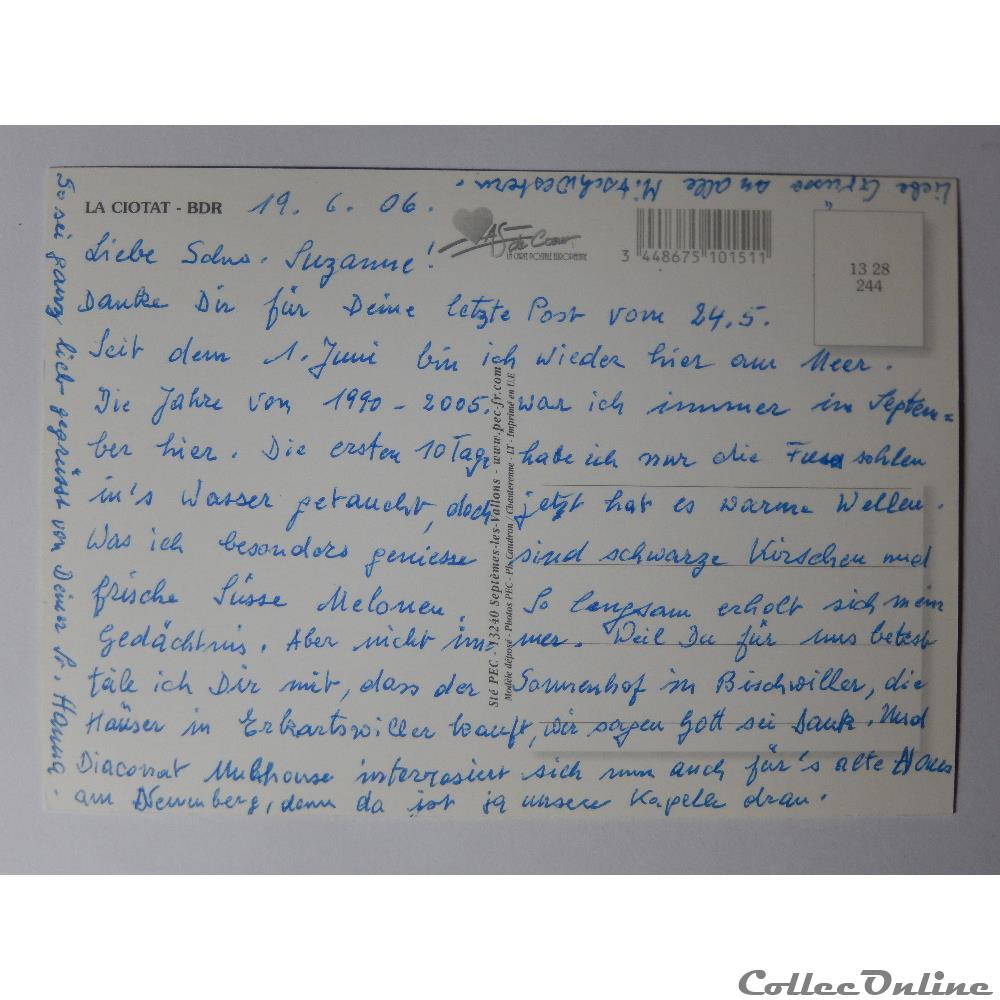 Liebe Grüsse an alle Mitschwestern.
LA CIOTAT - BDR 19. 6. 06.
As de Coeur
LA CARTE POSTALE EUROPÉENNE
3 448675 101511
13 28
244
Liebe Schw. Suzanne!
Danke Dir für Deine letzte Post vom 24.5.
Seit dem 1. Juni bin ich wieder hier am Meer.
Die Jahre von 1990 - 2005. war ich immer im Septem=
ber hier. Die ersten 10 Tage habe ich nur die Fusssohlen
in's Wasser getaucht, doch jetzt hat es warme Wellen.
Was ich besonders geniesse sind schwarze Kirschen und
frische Süsse Melonen. So langsam erholt sich mein
Gedächtnis. Aber nicht im= mer. Weil Du für uns betest
täle ich Dir mit, dass der Sonnenhof in Bischwiller, die
Häuser in Erkartswiller kauft, wir sagen Gott sei Dank. Und
Diaconat Mulhouse interrosiert sich nun auch für's alte
am Neuenberg, denn da ist ja unsere Kapelle dran.
So sei ganz lieb gegrüsst von Deiner Sr. Hanna.
Sté PEC - 13240 Septèmes-les-Vallons - www.pec-fr.com
Modèle déposé - Photos PEC - Ph. Gaudron / Chanterenne - LT - Imprimé en U.E
CollecOnline